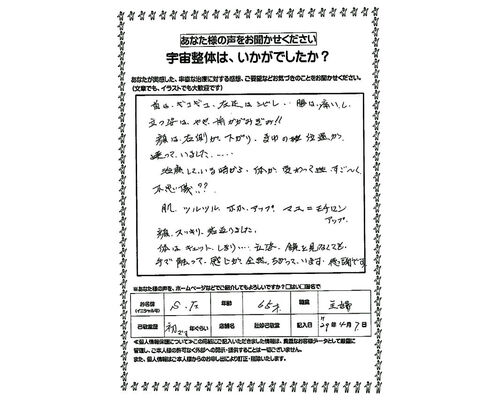 あなた様の声をお聞かせください
宇宙整体は、いかがでしたか?
あなたが実感した、率直な治療に対する感想、ご要望などお気づきのことをお聞かせください。
(文章でも、イラストでも大歓迎です)
首は、ギュギュ、左足はシビレ… 腰は、痛いし、
立つ姿は、やや、前かがみぎみ!!
顔は左側が下がり、
違っていました……
治療している時から、体が、変わって すごーく、
不思議??
肌、ツルツル、アップ、
アップ。
顔、スッキリ、若返りました。
体は、キュット、しまり…… 鏡を見なくても、
手で触って、感じが、全然、ちがっています。
※あなた様の声を、ホームページなどでご紹介してもよろしいですか?□はい□匿名で
お名前 (イニシャル可) S.T. 年齢 65才 職業 主婦
己敬堂歴 初です 年ぐらい 店舗名 記入日 H29年 月7日
≪個人情報保護について≫この用紙にご記入いただきました情報は、貴重なお客様データとして厳重に
管理し、ご本人様の許可なく外部への開示・提供することは一切ございません。
また、個人情報はご本人様からのお申し出により訂正・削除いたします。